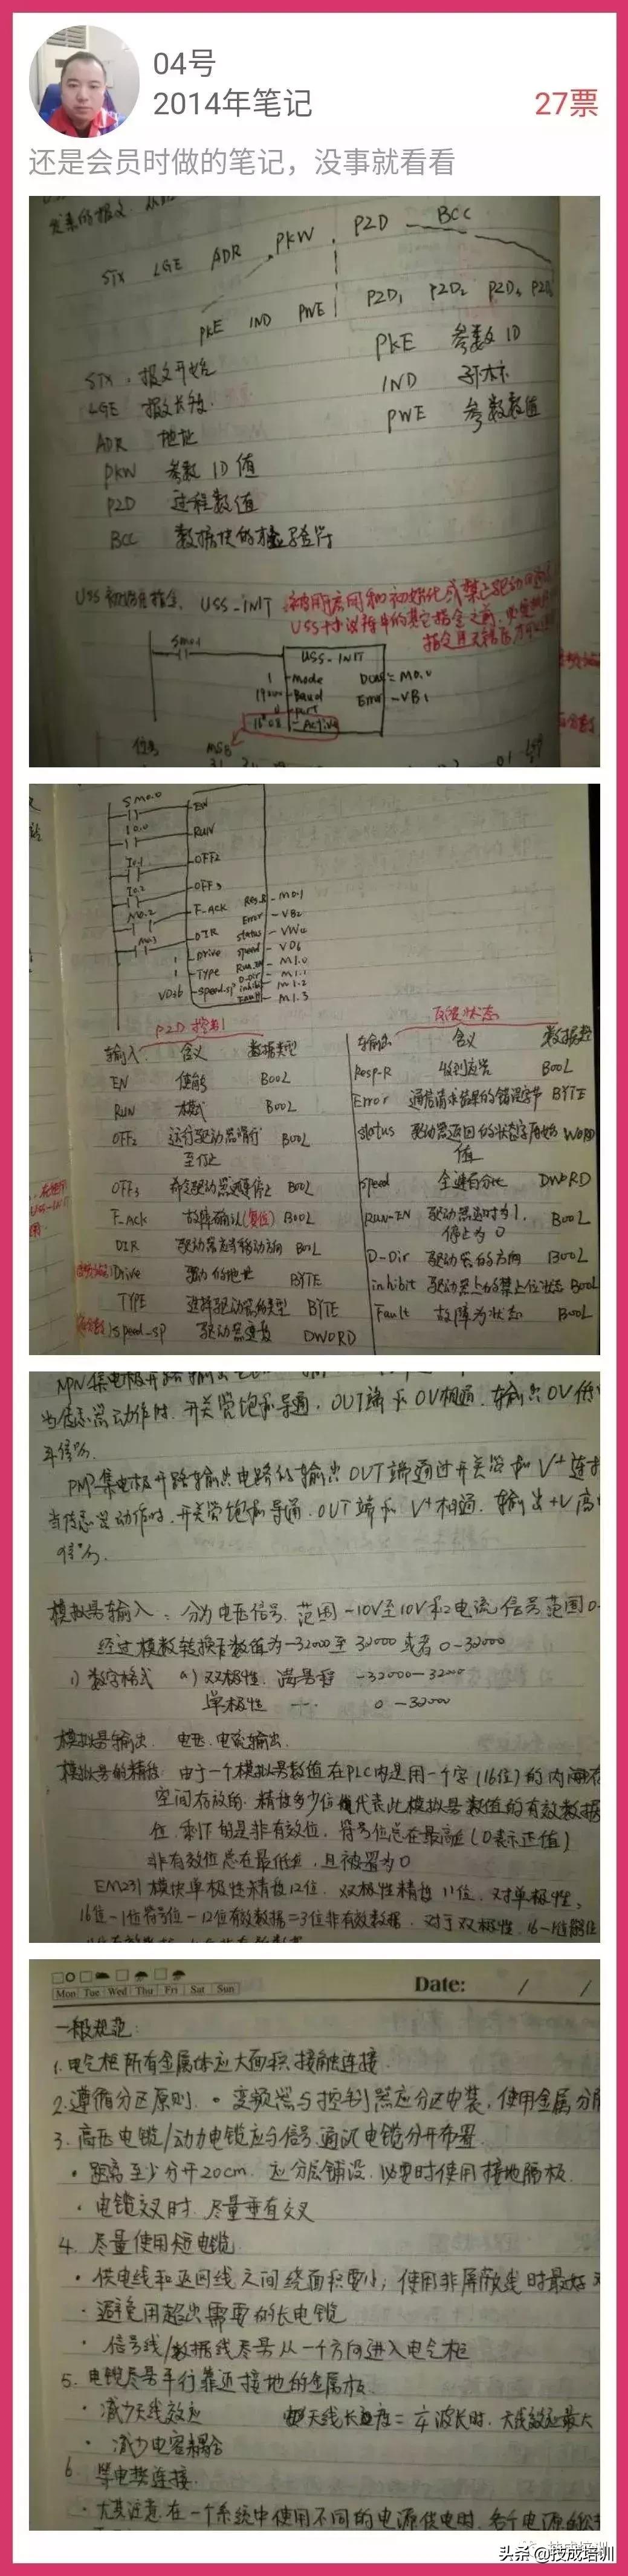 04号
2014年笔记
27票
还是会员时做的笔记，没事就看看
发来的报文
STX LGE ADR PKW PZD BCC
PKE IND PWE PZD1 PZD2 PZD3 PZD4
STX 报文开始
LGE 报文长度
ADR 地址
PKW 参数ID值
PZD 过程数值
BCC 数据块的检验字符
PKE 参数ID
IND 子标
PWE 参数数值
USS初始化指令, USS-INIT 被用来启用和初始化或禁止驱动
USS协议中的其它指令之前
SM0.1
USS-INIT
1 mode Done M0.0
Baud Error VB1
0 port
16#08 Active
MSB
SM0.0 EN
I0.0 RUN
I0.1 OFF2
I0.2 OFF3
M0.2 F-ACK Res-R M0.1
M0.3 DIR Error VB2
status VW4
1 Drive speed VD6
1 Type M1.0
speed-sp D-Dir M1.1
inhibit M1.2
Fault M1.3
PZD控制
反馈状态
输入 含义 数据类型
EN 使能 BOOL
RUN 模式 BOOL
OFF2 运行驱动器滑行至停止 BOOL
OFF3 命令驱动器迅速停止 BOOL
F-ACK 故障确认(复位) BOOL
DIR 驱动器应当移动方向 BOOL
Drive 驱动的地址 BYTE
TYPE 选择驱动器的类型 BYTE
speed-sp 驱动器速度 DWORD
输出 含义 数据类型
Resp-R 收到应答 BOOL
Error 通信请求结果的错误字节 BYTE
status 驱动器返回的状态字原始值 WORD
speed 全速百分比 DWORD
RUN-EN 驱动器运行时为1,停止为0 BOOL
D-Dir 驱动器的方向 BOOL
inhibit 驱动器上的禁止位状态 BOOL
Fault 故障为状态 BOOL
NPN集电极开路输出
当传感器动作时,开关管饱和导通,OUT端和0V相通,输出0V低
平信号.
PNP集电极开路输出电路的输出OUT端通过开关管和V+连接
当传感器动作时,开关管饱和导通,OUT端和V+相通,输出+V高
信号.
模拟量输入: 分为电压信号,范围-10V至10V和电流信号范围0-
经过模数转换后数值为-32000至32000或者0-32000
1) 数字格式 a)双极性 满量程 -32000-32000
单极性 --- 0-32000
模拟量输出 电压,电流输出.
模拟量的精度 由于一个模拟量数值在PLC内是用一个字(16位)的内
空间存放的,精度多少位就代表此模拟量数值的有效数据
位,剩下的是非有效位,符号位总在最高位(0表示正值)
非有效位总在最低位,且被置为0
EM231模块单极性精度12位,双极性精度11位,对单极性,
16位-1位符号位-12位有效数据=3位非有效数据,对于双极性,
Mon Tue Wed Thu Fri Sat Sun
Date: / /
一般规范:
1.电气柜所有金属体应大面积接触连接
2.遵循分区原则.·变频器与控制器应分区安装,使用金属分
3.高压电缆/动力电缆应与信号通讯电缆分开布置
·距离至少分开20cm.应分层铺设,必要时使用接地隔板.
·电缆交叉时,尽量垂直交叉
4.尽量使用短电缆
·供电线和返回线之间绕面积要小;使用非屏蔽线时最好
·避免用超出需要的长电缆
·信号线/数据线尽量从一个方向进入电气柜
5.电缆尽量平行靠近接地的金属板
·减少天线效应
天线长度=波长时,天线效应最大
·减少电容耦合
6 等电势连接
·尤其注意.在一个系统中使用不同的电源供电时,各个电源的
头条@技成培训